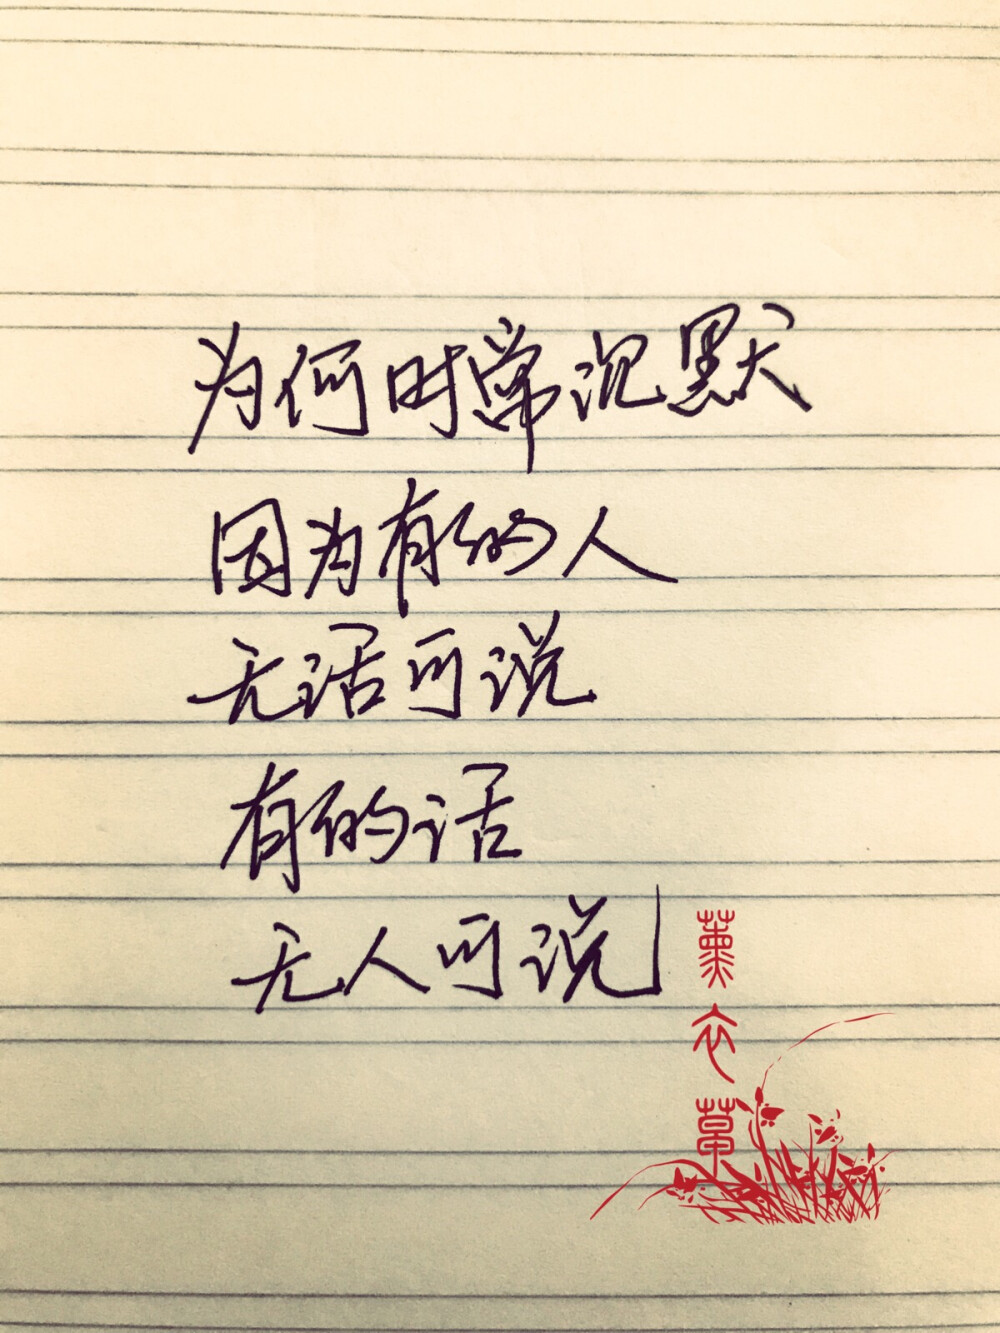 为何时常沉默
因为有的人
无话可说
有的话
无人可说
薰衣草